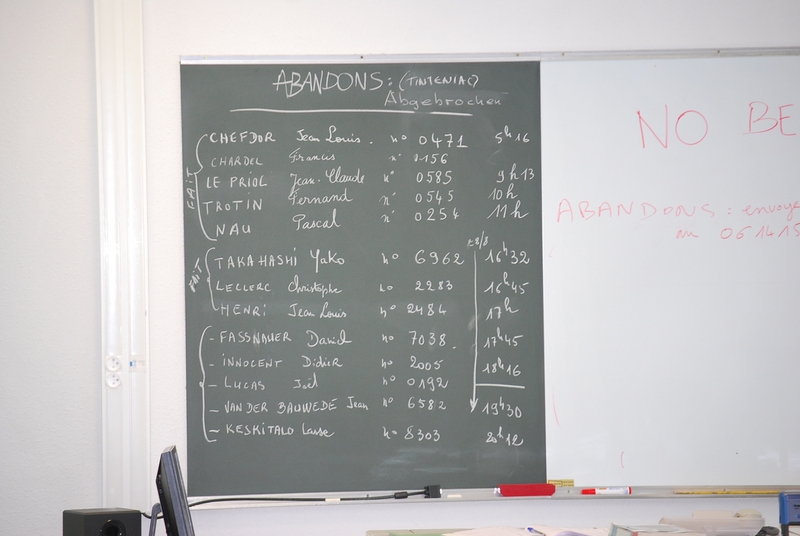 ABANDONS : (TINTENIAC)
Abgebrochen
FAIT
CHEFDOR Jean Louis. n° 0471 5h16
CHARDEL Francis n° 0156
LE PRIOL Jean-Claude n° 0585 9h13
TROTIN Fernand n° 0545 10h
NAU Pascal n° 0254 11h
FAIT
TAKAHASHI Yako n° 6962 16h32
LECLERC Christophe n° 2283 16h45
HENRI Jean Louis n° 2484 17h
- FASSNAUER David n° 7038. 17h45
- INNOCENT Didier n° 2005 18h16
- LUCAS Joël n° 0192
- VAN DER BAUWEDE Jean n° 6582 19h30
- KESKITALO Lasse n° 8303 20h12
NO BE
ABANDONS : envoye
au 061415